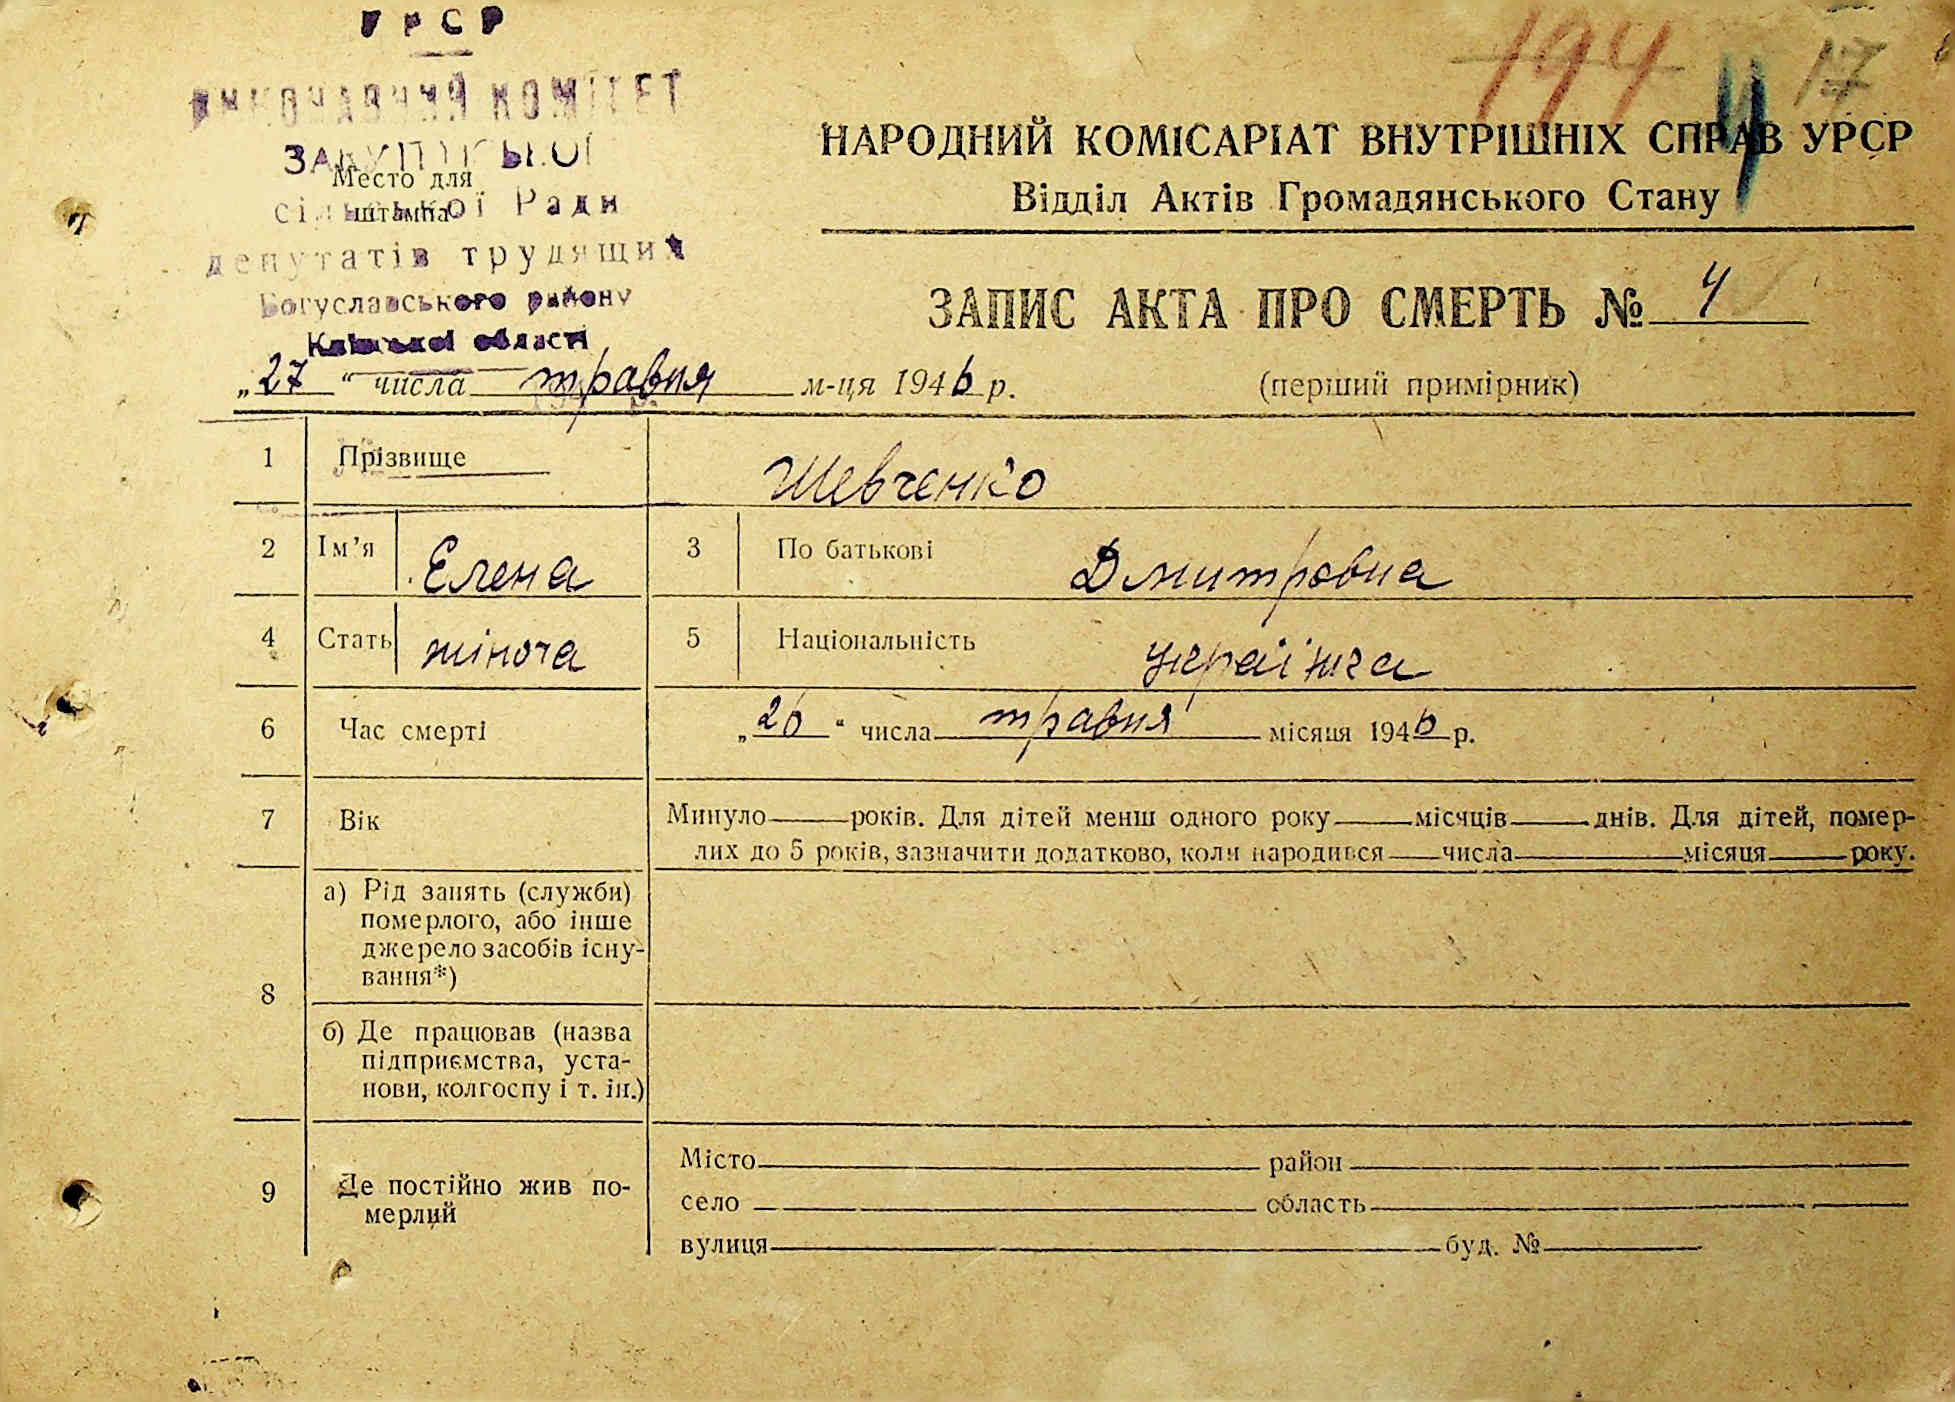 УРСР
194 4 17
ВИКОНАВЧИЙ КОМІТЕТ
ЗАКУТИНСЬКОЇ
Место для
штампа
сільської Ради
депутатів трудящих
Богуславського району
Київської області
НАРОДНИЙ КОМІСАРІАТ ВНУТРІШНІХ СПРАВ УРСР
Відділ Актів Громадянського Стану
ЗАПИС АКТА ПРО СМЕРТЬ № 4
„27“ числа травня м-ця 1946 р.
(перший примірник)
1 Прізвище Шевченко
2 Ім’я Елена 3 По батькові Дмитровна
4 Стать жіноча 5 Національність українка
6 Час смерті „26“ числа травня місяця 1946 р.
7 Вік Минуло років. Для дітей менш одного року місяців днів. Для дітей, помер-
лих до 5 років, зазначити додатково, коли народився числа місяця року.
8
а) Рід занять (служби)
померлого, або інше
джерело засобів існу-
вання*)
б) Де працював (назва
підприємства, уста-
нови, колгоспу і т. ін.)
9 Де постійно жив по-
мерлий
Місто район
село область
вулиця буд. №